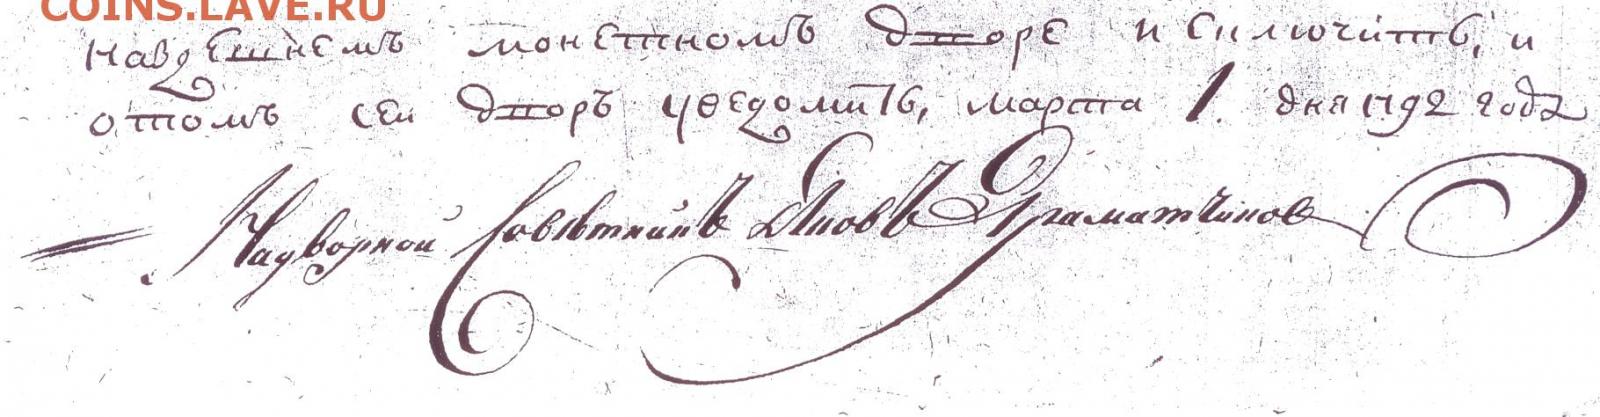 COINS.LAVE.RU
наздешнемъ монетномъ дворе исключить, и
отомъ сей дворъ уведомить, марта 1. дня 1792 году
Надворной Совѣтникъ Яковъ Граматчиковъ